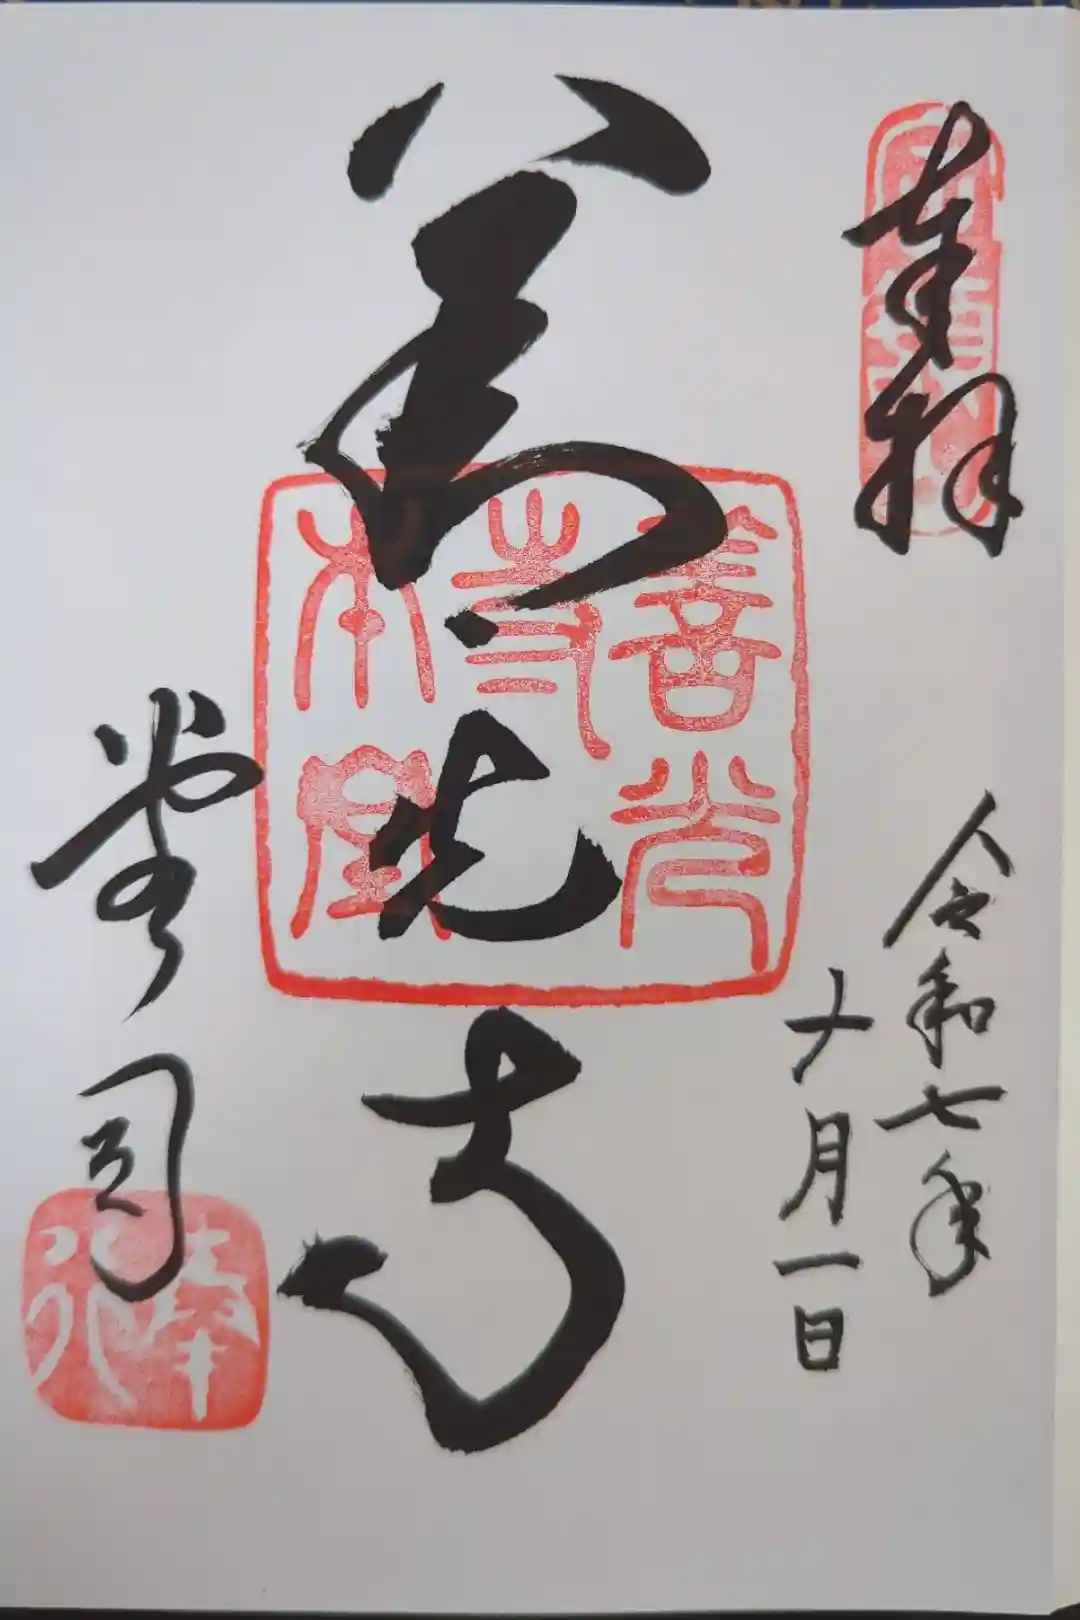 奉拝
令和七年
十月一日
善光寺
善光
寺
本堂
堂司